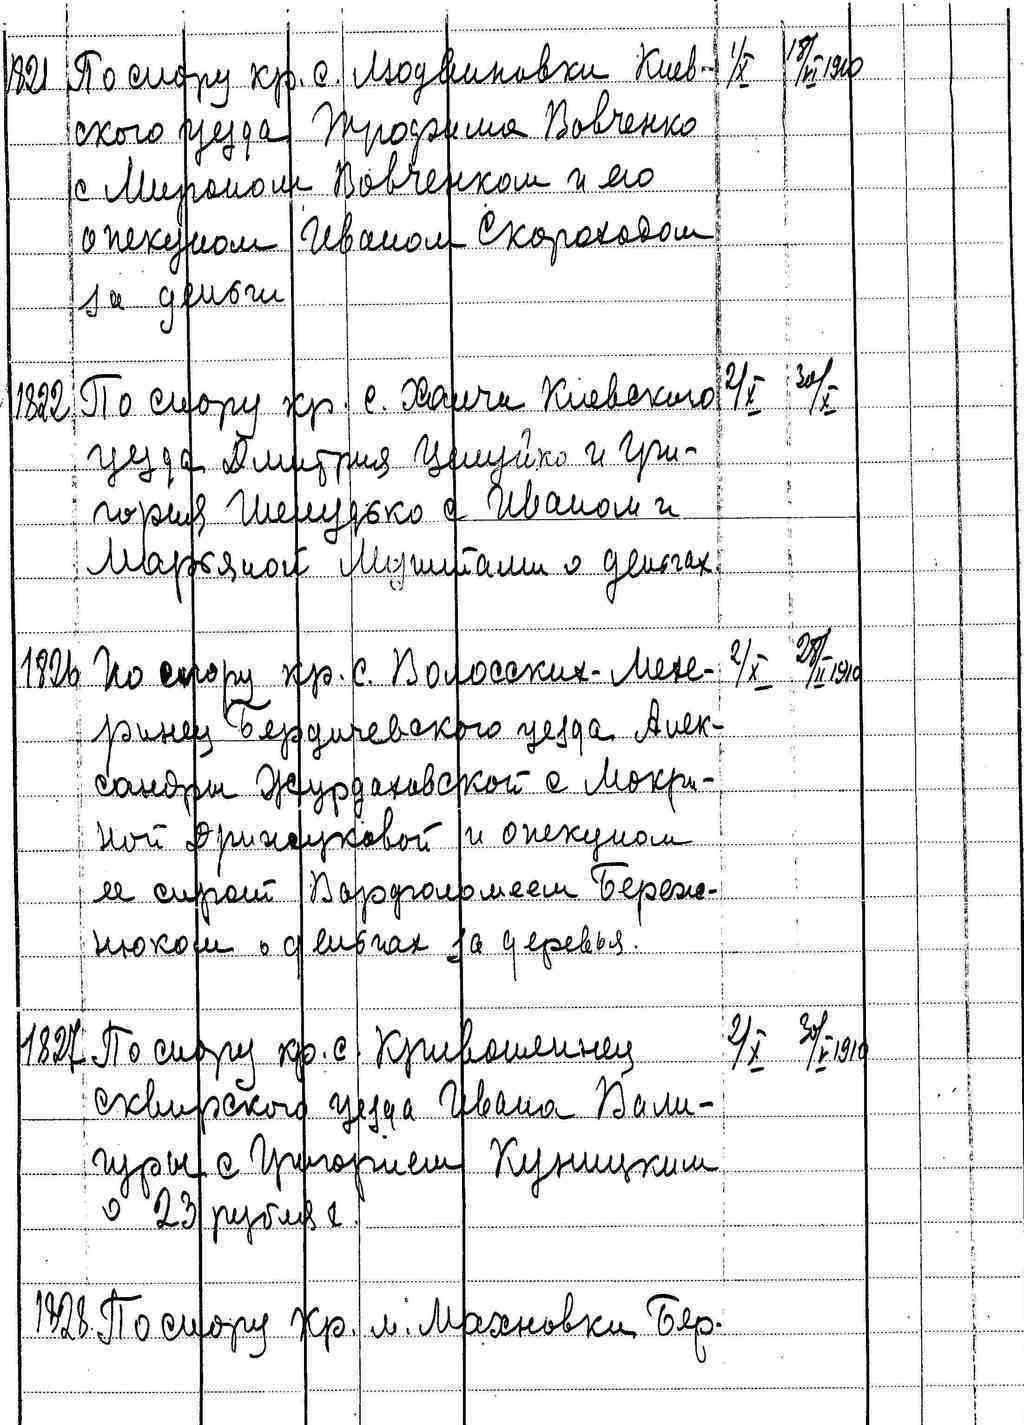 1821 По спору кр. с. Людвиновки Киев- 1/X 18/VI 1910
ского уезда Трофима Вовченко
с Мироном Вовченком и его
опекуном Иваном Скороходом
за деньги
1822 По спору кр. с. Хотчи Киевского 2/X 30/X
уезда Дмитрия Цецуйко и Гри-
гория Шелудько с Иваном и
Марьяной Мушитами о деньгах.
1826 По спору кр. с. Волосских-Меже- 2/X 28/II 1910
ринец Бердичевского уезда Алек-
сандры Журдаховской с Мокри-
ной Дринчуковой и опекуном
ее сирот Варфоломеем Береж-
нюком о деньгах за деревья.
1827 По спору кр. с. Кривошеинец 2/X 30/V 1910
сквирского уезда Ивана Вали-
гуры с Григорием Куницким
о 23 рублях.
1828 По спору кр. м. Махновки Бер-